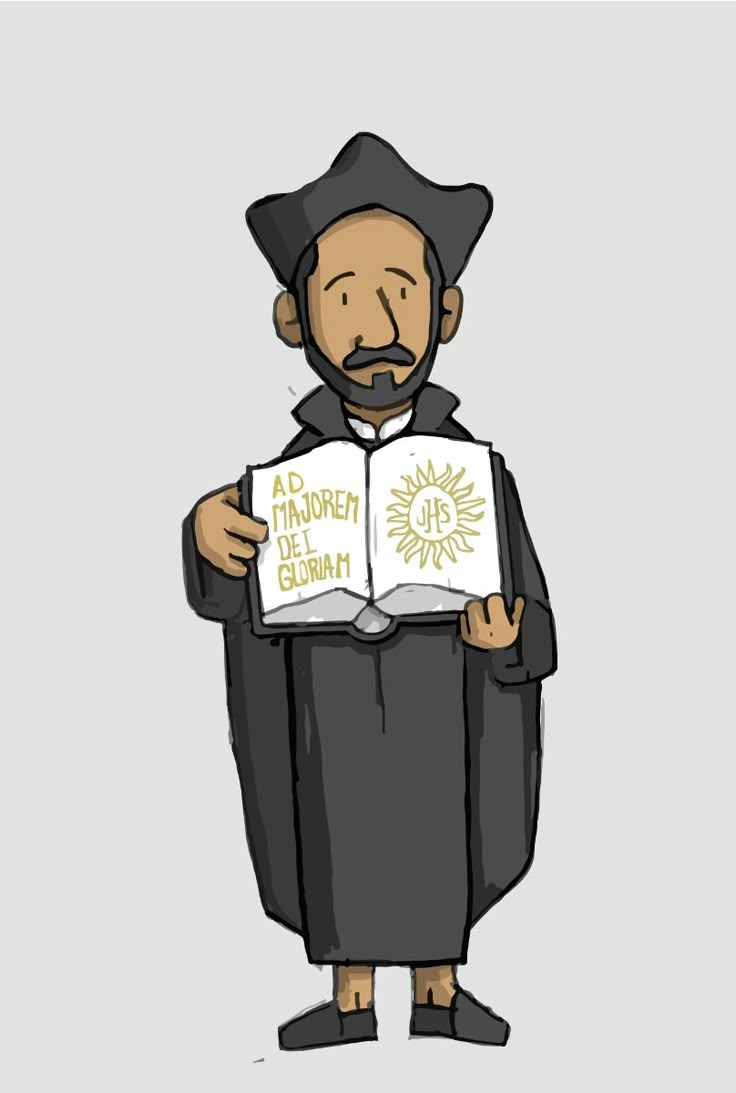 AD
MAJOREM
DEI
GLORIAM
JHS